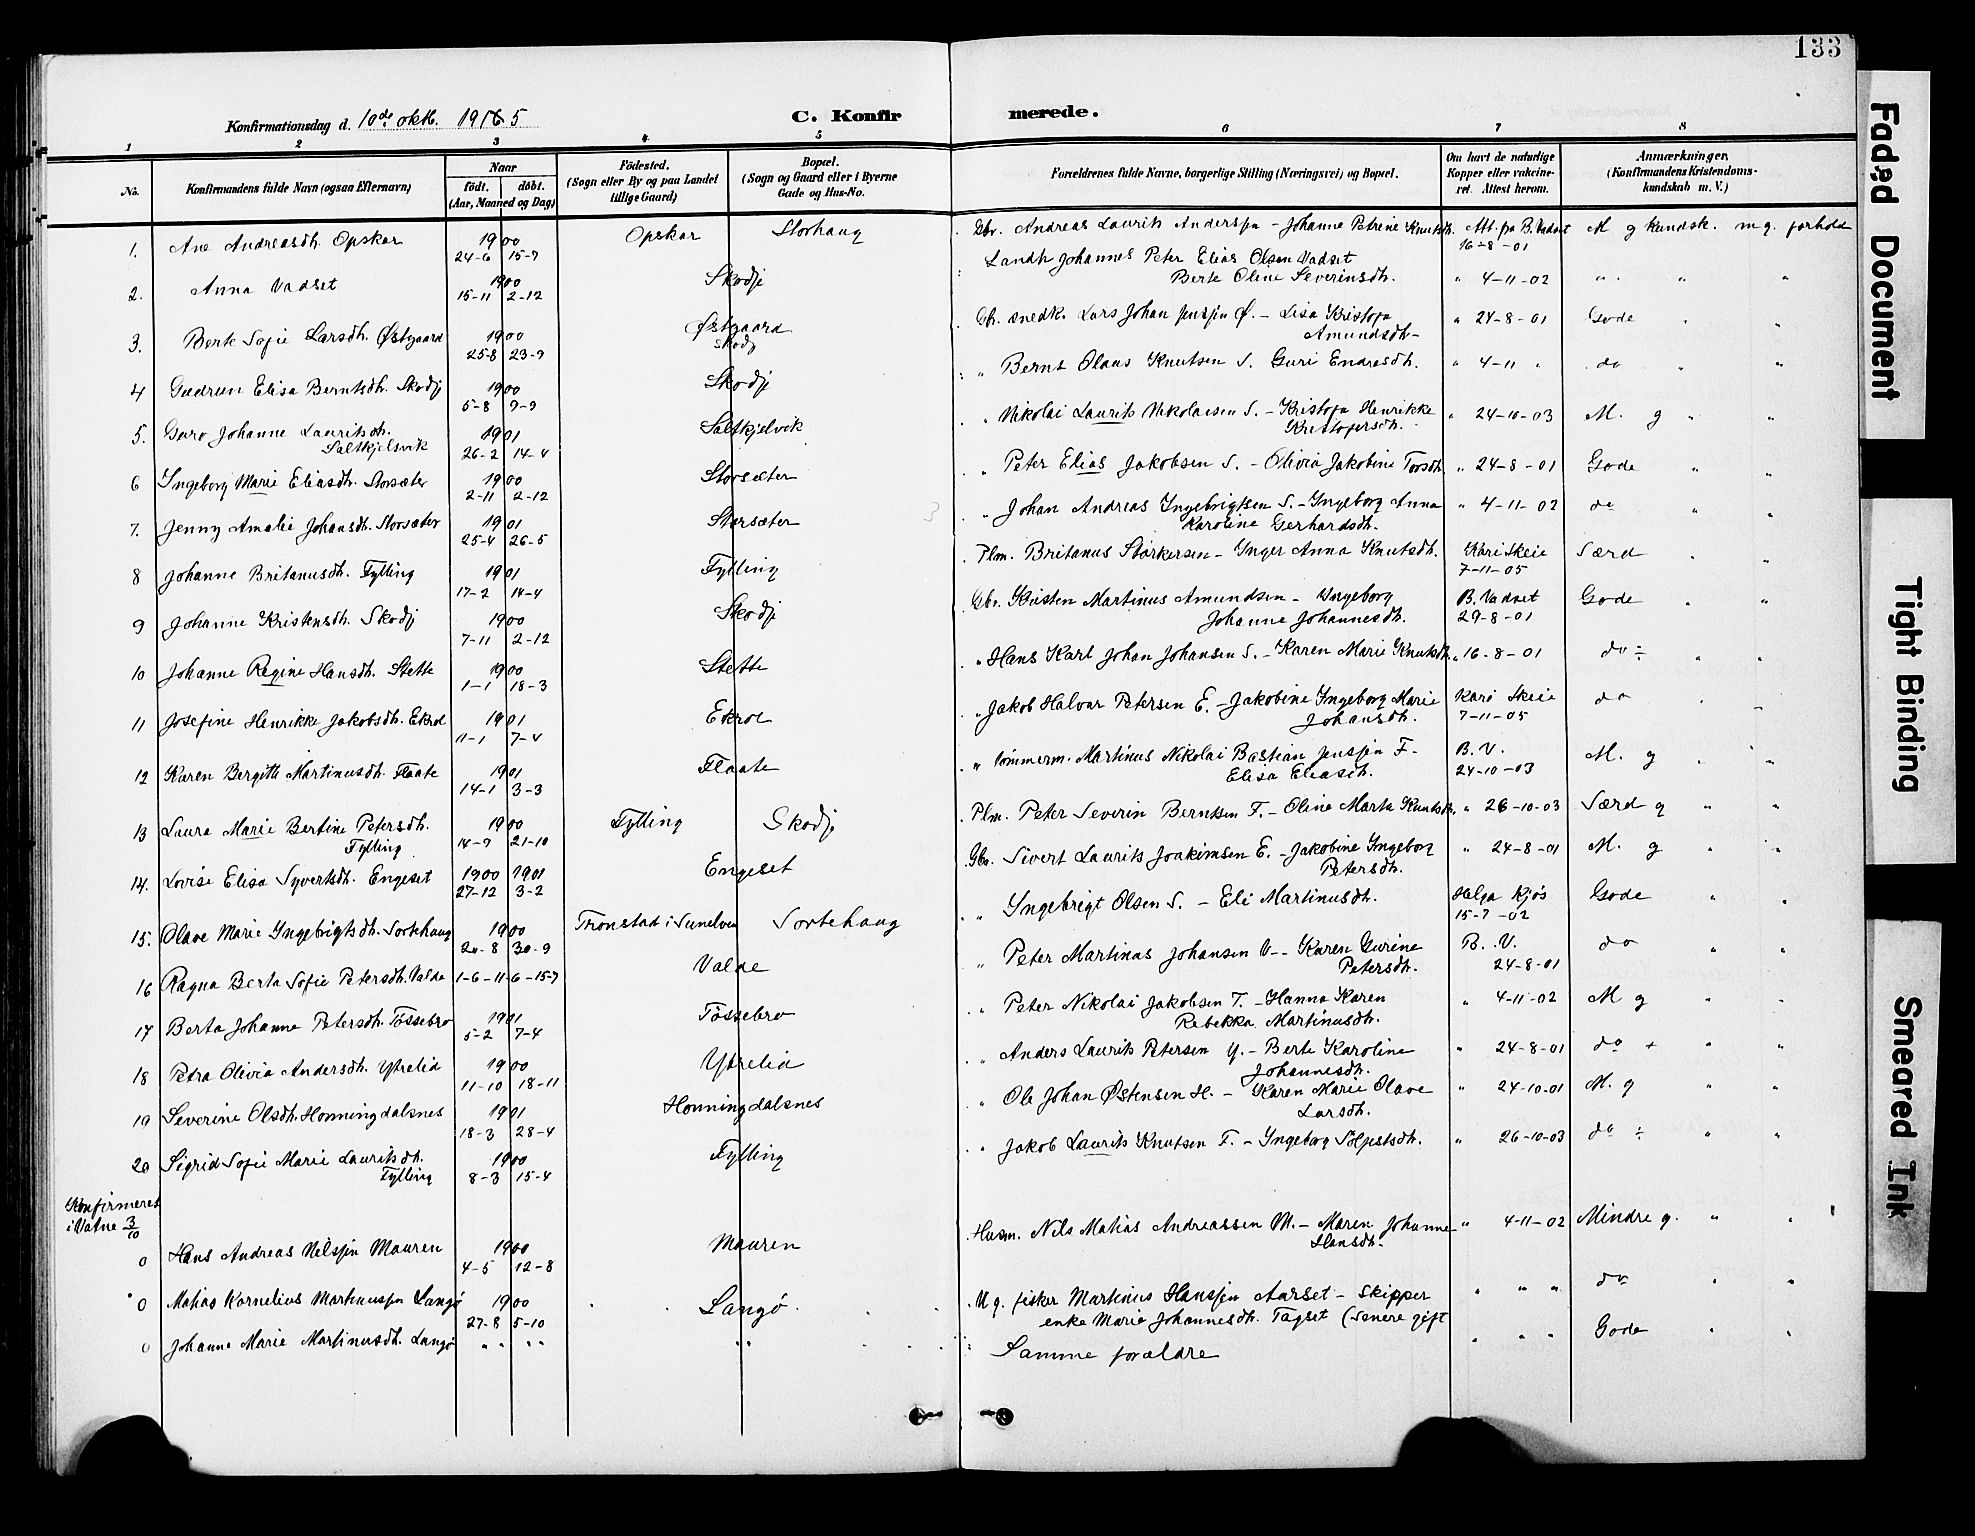 133
Konfirmationsdag d. 10de oktb. 1915
C. Konfirmerede.
1 2 3 4 5 6 7 8
No. Konfirmandens fulde Navn (ogsaa Efternavn) Naar født. døbt. (Aar, Maaned og Dag) Fødested. (Sogn eller By og paa Landet tillige Gaard) Bopæl. (Sogn og Gaard eller i Byerne Gade og Hus-No. Forældrenes fulde Navne, borgerlige Stilling (Næringsvei) og Bopæl. Om havt de naturlige Kopper eller vakcineret. Attest herom. Anmærkninger. (Konfirmandens Kristendomskundskab m. V.)
1. Ane Andreasdtr. Opskar 1900 24-6 15-7 Opskar Storhaug Gbr. Andreas Laurits Anderssen - Johanne Petrine Knutsdtr. Att. fra B. Vadset 16-8-01 M g kundsk. m g. forhold
2. Anna Vadset 1900 15-11 2-12 Skodje Landh. Johannes Peter Elias Olsen Vadset Berte Oline Severinsdtr. " 4-11-02 " " "
3. Berte Sofie Larsdtr. Østgaard 1900 25-8 23-9 Østgaard Skodj Gbr. snedk. Lars Johan Jensen Ø. - Lisa Kristofa Amundsdtr- " 24-8-01 Gode " "
4 Gudrun Elisa Berntsdtr. Skodje 1900 5-8 9-9 Skodje " Bernt Olaus Knutsen S. Guri Endresdtr. " 4-11 " do " "
5. Guro Johanne Lauritsdtr. Saltkjelsvik 1901 26-2 14-4 Saltkjelvik " Nikolai Laurits Nikolaisen S. - Kristofa Henrikke Kristofersdtr. " 24-10-03 M. g " "
6 Ingeborg Marie Eliasdtr. Storsæter 1900 2-11 2-12 Storsæter " Peter Elias Jakobsen S. - Olivia Jakobine Torsdtr. " 24-8-01 Gode " "
7. Jenny Amalie Johansdtr. Storsæter 1901 25-4 26-5 Storsæter " Johan Andreas Ingebrigtsen S. - Ingeborg Anna Karoline Gerhardsdtr. " 4-11-02 do " "
8 Johanne Britanusdtr. Fylling 1901 17-2 14-4 Fylling Plm. Britanus Storkersen - Inger Anna Knutsdtr. Kari Skeie 7-11-05 Særd " "
9 Johanne Kristensdtr. Skodje 1900 7-11 2-12 Skodje Gbr. Kristen Martinus Amundsen - Ingeborg Johanne Johannesdtr. B. Vadset 29-8-01 Gode " "
10 Johanne Regine Hansdtr. Stette 1900 1-1 18-3 Stette " Hans Karl Johan Johansen S. - Karen Marie Knutsdtr. " 16-8-01 do ÷ " "
11 Josefine Henrikke Jakobsdtr. Ekrol 1901 11-1 7-4 Ekrol " Jakob Halvar Petersen E. - Jakobine Ingeborg Marie Johansdtr. Kari Skeie 7-11-05 do " "
12 Karen Bergitte Martinusdtr. Flaate 1901 14-1 3-3 Flaate " tømmerm. Martinus Nikolai Bastian Jensen F. - Elisa Eliasdtr. B. V. 24-10-03 M. g " "
13 Laura Marie Bertine Petersdtr. Fylling 1900 14-9 21-10 Fylling Skodje Plm. Peter Severin Berntsen F. - Oline Marta Knutsdtr. " 26-10-03 Særd g " "
14. Lovise Elisa Syvertsdtr. Engeset 1900 1901 27-12 3-2 Engeset Gbr. Sivert Laurits Joakimsen E. - Jakobine Ingeborg Petersdtr. " 24-8-01 M. g " "
15. Olave Marie Ingebrigtsdtr. Sortehaug 1900 20-8 30-9 Tronstad i Sunelven Sortehaug " Ingebrigt Olsen S. - Eli Martinusdtr. Helga Kjøs 15-7-02 Gode " "
16 Ragna Berta Sofie Petersdtr. Valde 1-6-11-6-15-7 Valde " Peter Martinus Johansen V- Karen Gurine Petersdtr. B. V. 24-8-01 do " "
17 Berta Johanne Petersdtr. Tøssebro 1901 5-2 7-4 Tøssebro " Peter Nikolai Jakobsen T. - Hanna Karen Rebekka Martinusdtr. " 4-11-02 M g " "
18 Petra Olivia Andersdtr. Ytrelid 1900 11-10 18-11 Ytrelid " Anders Laurits Petersen Y. - Berte Karoline Johannesdtr. " 24-8-01 do + " "
19 Severine Olsdtr. Honningdalsnes 1901 18-3 28-4 Honningdalsnes " Ole Johan Østensen H. - Karen Marie Olave Larsdtr. " 24-10-01 M. g " "
20 Sigrid Sofie Marie Lauritsdtr. Fylling 1900 8-3 15-4 Fylling " Jakob Laurits Knutsen F. - Ingeborg Sølfestsdtr. " 26-10-03 do ÷ " "
Konfirmeret i Vatne 3/10
0 Hans Andreas Nilssen Mauren 1900 4-5 12-8 Mauren Husm. Nils Matias Andreassen M. - Maren Johanne Hansdtr. " 4-11-02 Mindre g. " "
0 Matias Kornelius Martinussen Langø 1900 27-8 5-10 Langø U g. fisker Martinus Hanssen Aarset - skipper enke Marie Johannesdtr. Tagset (senere gift " " " do " "
0 Johanne Marie Martinusdtr. Langø " " " " " " Samme forældre " " " Gode " "
Faded Document
Tight Binding
Smeared Ink